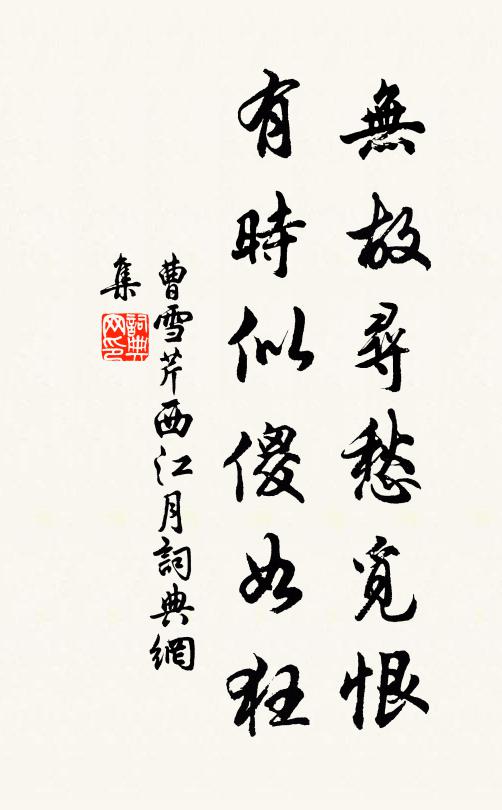 無故尋愁覓恨
有時似傻如狂
曹雪芹西江月詞典網
集
詞典
网印